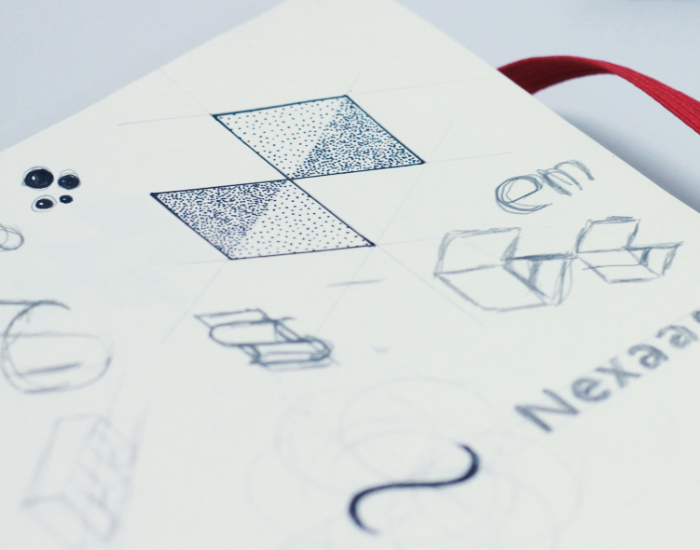 em
Nexaa